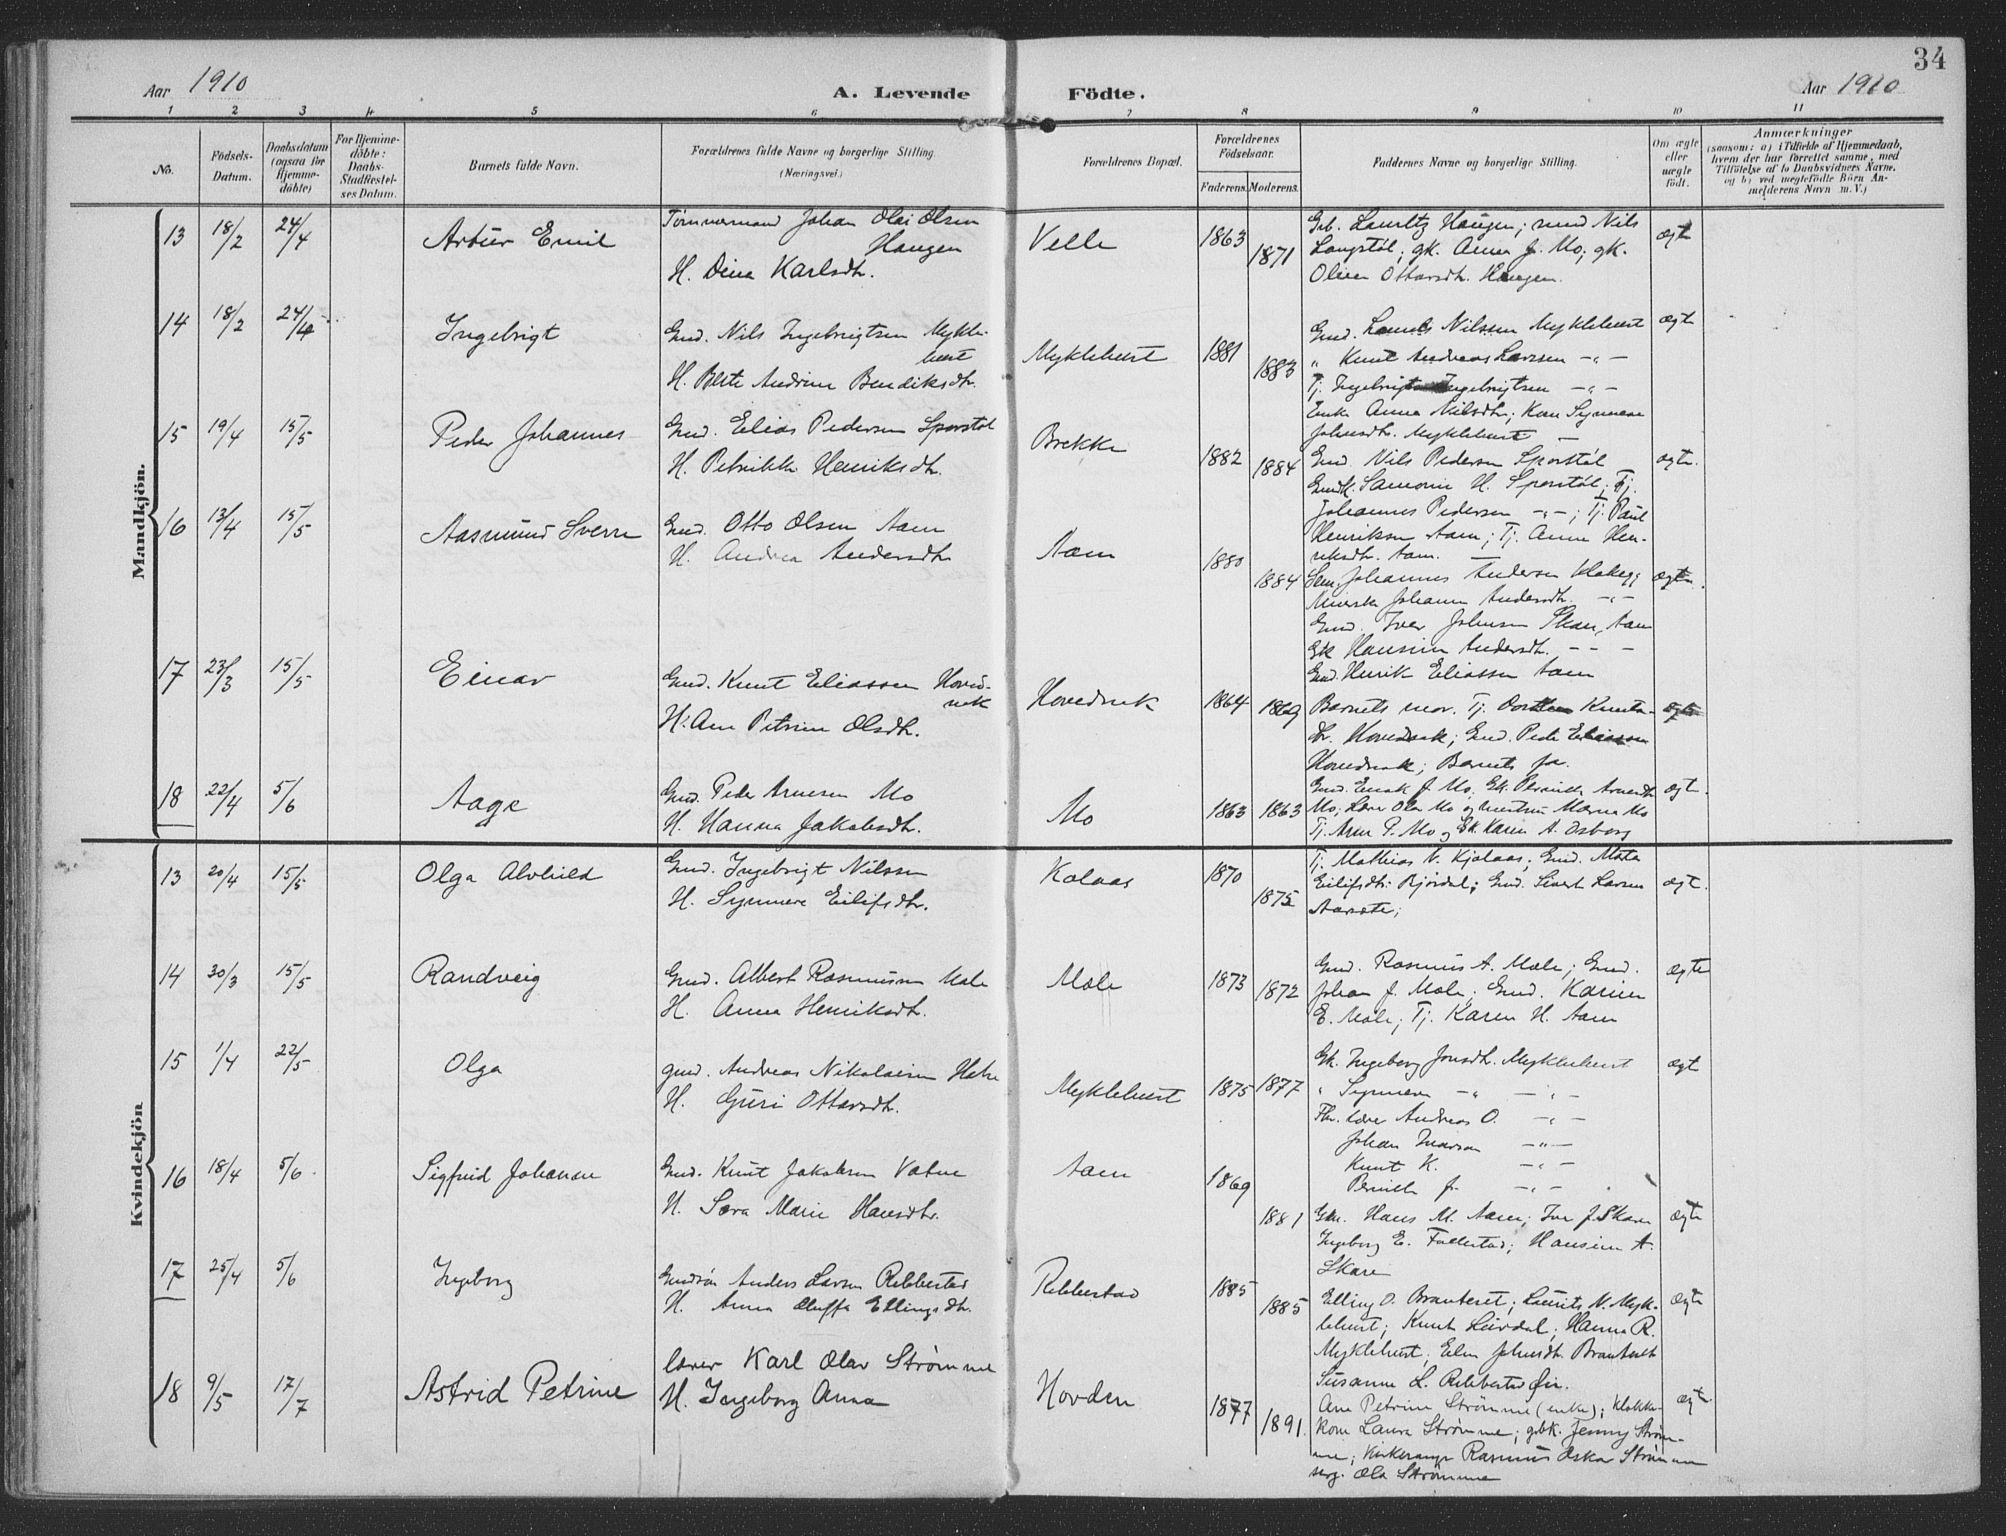 34
Aar 1910
A. Levende Födte.
Aar 1910
1 2 3 4 5 6 7 8 9 10 11
No.
Födsels-Datum.
Daabsdatum (ogsaa for Hjemme-döbte)
For Hjemme-döbte: Daabs-Stadfæstel-ses Datum.
Barnets fulde Navn.
Forældrenes fulde Navne og borgerlige Stilling.
(Næringsvei.)
Forældrenes Bopæl.
Forældrenes Födselsaar.
Faderens. Moderens.
Faddernes Navne og borgerlige Stilling.
Om ægte eller uægte födt.
Anmærkninger
(saasom: a) i Tilfælde af Hjemmedaab, hvem der har forrettet samme, med Tilföielse af to Daabsvidners Navne, og b) ved uægtefödte Börn An-melderens Navn m. V.)
Mandkjön.
13 18/2 24/4 Artur Emil
Tømmermand Johan Olai Olsen
Haugen
H. Dina Karlsdtr.
Velle 1863 1871
Grb. Lauritz Haugen; Nils
Langstøl; gk. Anna J. Mo; gk.
Oline Ottarsdtr. Haugen.
ægte
14 18/2 24/4 Ingebrigt
Gmd. Nils Ingebrigtsen Mykle-
bust
H. Berte Andrine Bendiksdtr.
Myklebust 1881 1883
Gmd. Nilssen Myklebust
" Knut Andreas Larssen -"-
Tj. Ingebrigt Ingebrigtsen -"-
Enke Anna Nilsdtr; Kone Synneve
Johnsdtr. Myklebust
ægte
15 19/4 15/5 Peder Johannes
Gmd. Elias Pedersen Sporstøl
H. Petrikke Henriksdtr.
Brekke 1882 1884
Gmd. Nils Pedersen Sporstøl
Gmdk. H. Sporstøl; Tj.
Johannes Pedersen -"-; Tj. Paul
Henriksen Aam; Tj. Anne Hen-
riksdtr. Aam.
ægte.
16 13/4 15/5 Aasmund Sverre
Gmd. Otto Olsen Aam
H. Andrea Andersdtr.
Aam 1880 1884
Johannes Andersen Klokeg;
Johanne Andersdtr. -"-
Gmd. Iver Johnsen Skare, Aam
Gk Hansine Andersdtr. - - -
Gmd. Henrik Eliassen Aam
ægte.
17 23/3 15/5 Einar
Gmd. Knut Eliassen Hoved-
nak
H. Ane Petrine Olsdtr.
Hovednak 1864 1869
Barnets mor. Tj. Knuts-
dtr. Hovednak; Gmd. Peder Eliassen
Hovednak; Barnets far.
ægte
18 22/4 5/6 Aage
Gmd. Peder Arnesen Mo
H. Hanna Jakobsdtr.
Mo 1863 1863
Gmd. J. Mo, Gk. Pernille
Mo; Ola Mo og Mo
Tj. Arne P. Mo og Gk. Karen A. Osborg
ægt.
Kvindekjön
13 20/4 15/5 Olga Alvhild
Gmd. Ingebrigt Nilssen
H. Synneve Eilifsdtr.
Kolaas 1870 1875
Tj. Mathias N. Kjolaas; Gmd.
Eilifsdtr. Bjørdal; Gmd. Sivert Larsen
Aarsæte;
ægt.
14 30/3 15/5 Randveig
Gmd. Albert Rasmussen Mole
H. Anna Henriksdtr.
Mole 1873 1872
Gmd. Rasmus A. Mole; Gmd.
Johan J. Mole; Gmd. Karine
E. Mole; Tj. Karen H. Aam
ægte
15 1/4 22/5 Olga
gmd. Andreas Nikolaisen
H. Guri Ottarsdtr.
Myklebust 1875 1877
Gk. Ingeborg Jonsdtr. Myklebust
" Synneve -"- -"-
Andreas O. -"-
Johan Ivarson -"-
Knut K. -"-
Pernille J. -"-
ægt
16 18/4 5/6 Sigfrid Johanne
Gmd. Knut Jakobsen Vatne
H. Sara Marie Hansdtr.
Aam 1869 1881
Hans M. Aam; Iver J. Skare
Ingeborg E. Follestad; Hansine A.
Skare
ægte
17 25/4 5/6 Ingeborg
Gmdsøn Anders Larsen Ribbestad
H. Anna Oluffa Ellingsdtr.
Ribbestad 1885 1885
Elling O. Brauteset; Laurits N. Myk-
lebust; Knut Lievdal; Hanna R.
Myklebust, Elen Johnsdtr. Brauteset
Susanne L. Ribbestad
ægte
18 9/5 17/7 Astrid Petrine
lærer Karl Olav Strømme
H. Ingeborg Anna
Hovden 1877 1891.
Ane Petrine Strømme (enke); klokker-
kone Laura Strømme; gbk. Jenny Strøm-
me; Kirkesanger Rasmus Oskar Strømme
og Ola Strømme
ægte